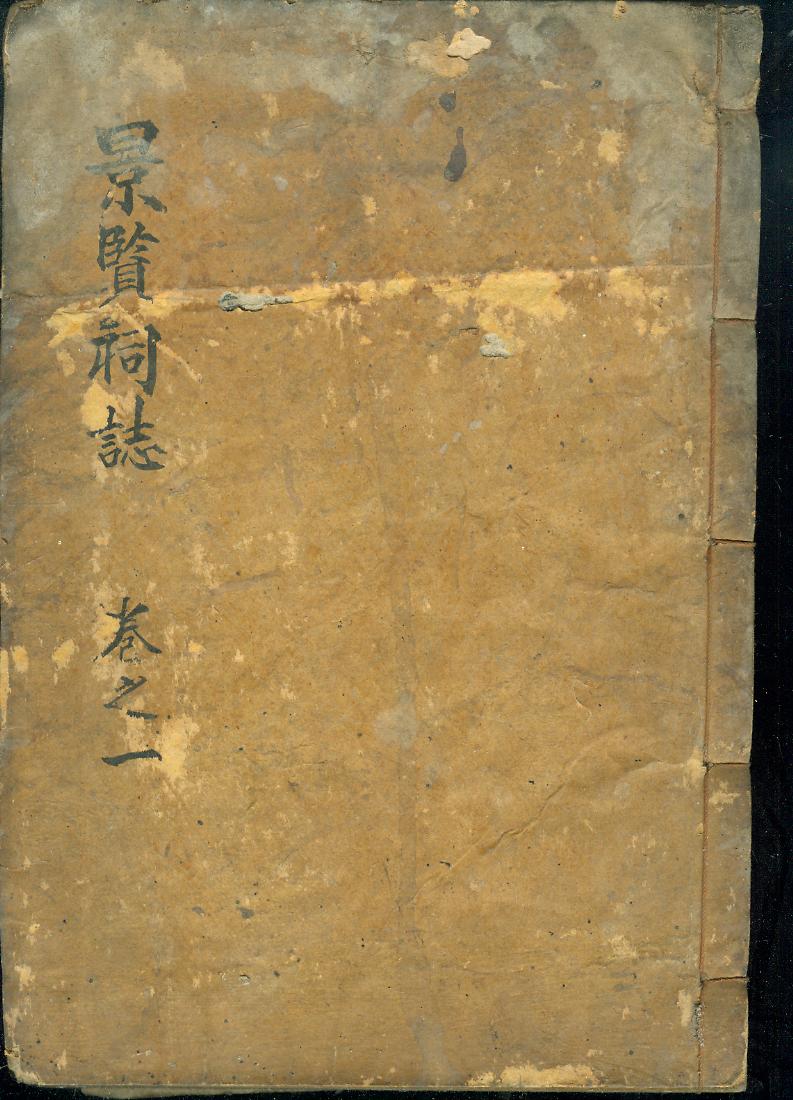 景賢祠誌 卷之一